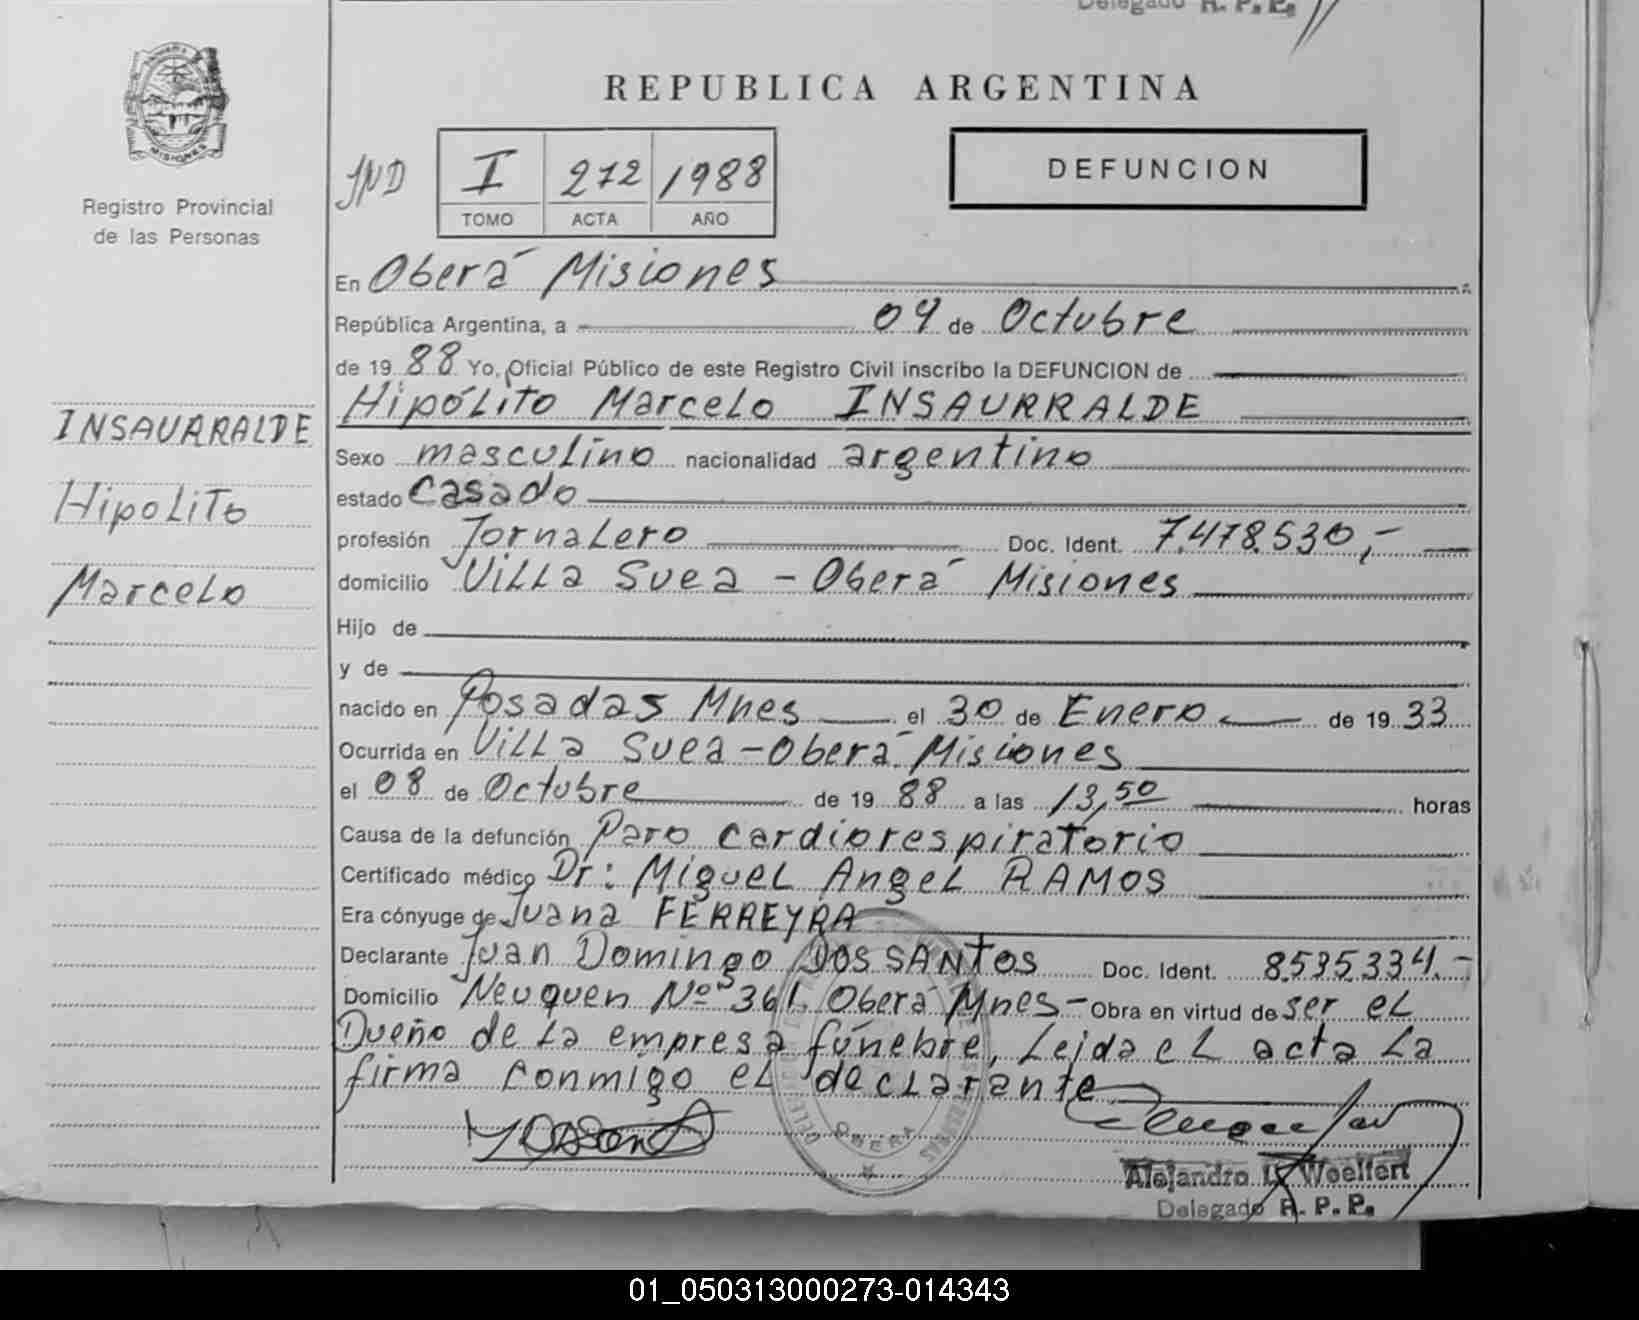 Delegado R. P. P.
REPUBLICA ARGENTINA
MISIONES
Registro Provincial
de las Personas
JND
I 272 1988
TOMO ACTA AÑO
DEFUNCION
En Oberá Misiones
República Argentina, a 09 de Octubre
de 19 88 Yo, Oficial Público de este Registro Civil inscribo la DEFUNCION de
Hipólito Marcelo INSAURRALDE
INSAURRALDE
Hipolito
Marcelo
Sexo masculino nacionalidad argentino
estado Casado
profesión Jornalero Doc. Ident. 7.478.530,-
domicilio Villa Svea - Oberá Misiones
Hijo de
y de
nacido en Posadas Mnes el 30 de Enero de 19 33
Ocurrida en Villa Svea - Oberá Misiones
el 08 de Octubre de 19 88 a las 13,50 horas
Causa de la defunción Paro cardiorespiratorio
Certificado médico Dr: Miguel Angel RAMOS
Era cónyuge de Juana FERREYRA
Declarante Juan Domingo DOS SANTOS Doc. Ident. 8.535.334.-
Domicilio Neuquen Nº 361 Oberá Mnes - Obra en virtud de ser el
Dueño de la empresa fúnebre, Leida el acta la
firma conmigo el declarante
OBERA
Alejandro L. Woelfert
Delegado R. P. P.
01_050313000273-014343